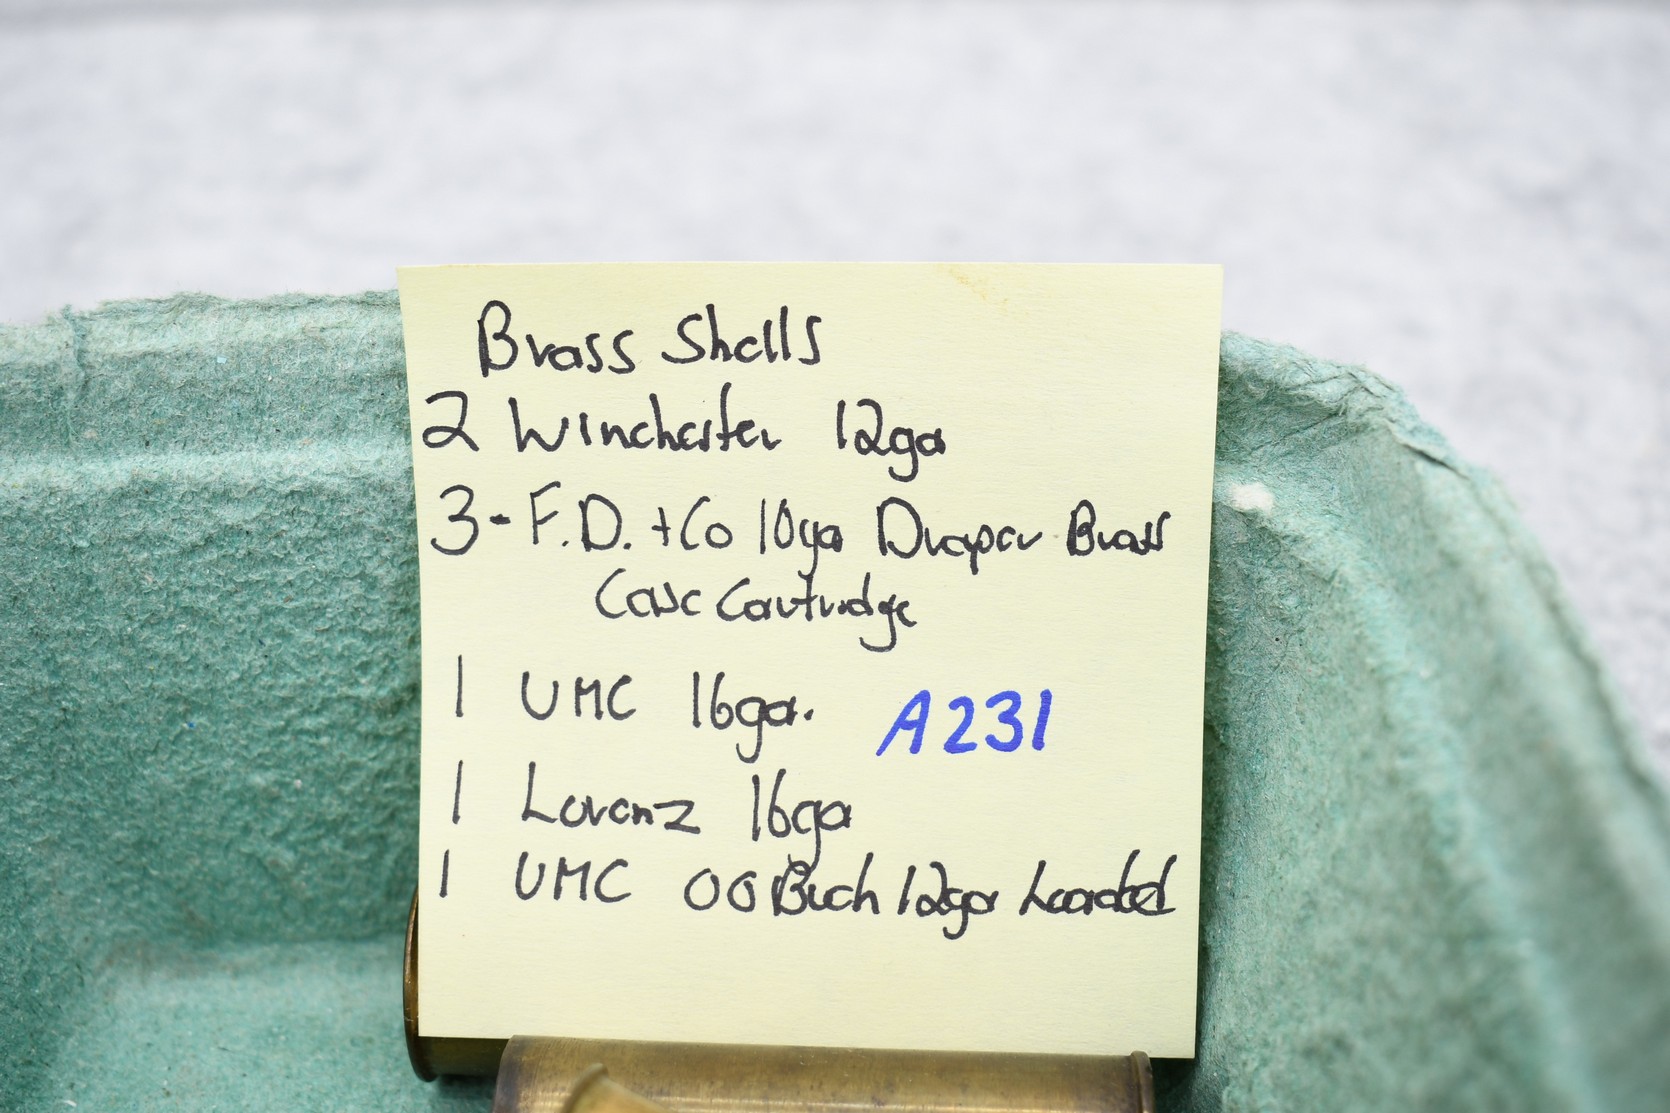 Brass Shells
2 Winchester 12ga
3- F.D. + Co 10ga Draper Brass
Case Cartridge
1 UMC 16ga. A231
1 Lorenz 16ga
1 UMC 00 Buck 12ga Loaded